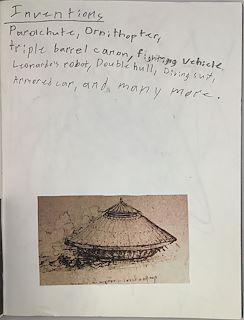 Inventions
Parachute, Ornithopter,
triple barrel canon, fighting vehicle,
Leonardo's robot, Double hull, Diving suit,
Armored car, and many more.